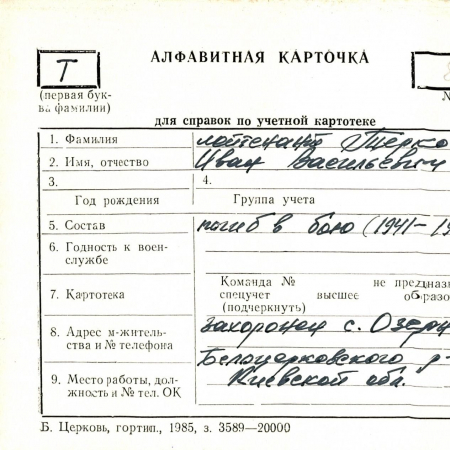 Т
АЛФАВИТНАЯ КАРТОЧКА
(первая бук-
ва фамилии)
№
для справок по учетной картотеке
1. Фамилия лейтенант Терко
2. Имя, отчество Иван Васильевич
3. 4.
Год рождения Группа учета
5. Состав погиб в бою (1941-19
6. Годность к воен-
службе
Команда № не предназ
7. Картотека спецучет высшее образо
(подчеркнуть)
8. Адрес м-житель- захоронен с. Озерн
ства и № телефона Белоцерковского р-
9. Место работы, дол- Киевской обл.
жность и № тел. ОК
Б. Церковь, гортип., 1985, з. 3589—20000